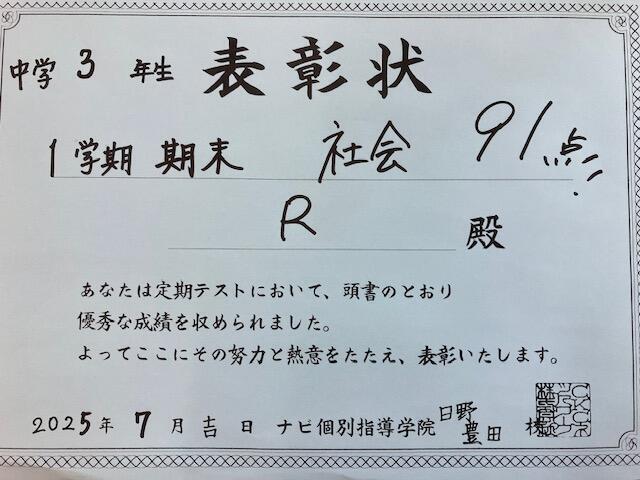 中学 3 年生 表彰状
1学期 期末 社会 91点!!
R 殿
あなたは定期テストにおいて、頭書のとおり
優秀な成績を収められました。
よってここにその努力と熱意をたたえ、表彰いたします。
2025年 7月 吉 日 ナビ個別指導学院 日野豊田 校